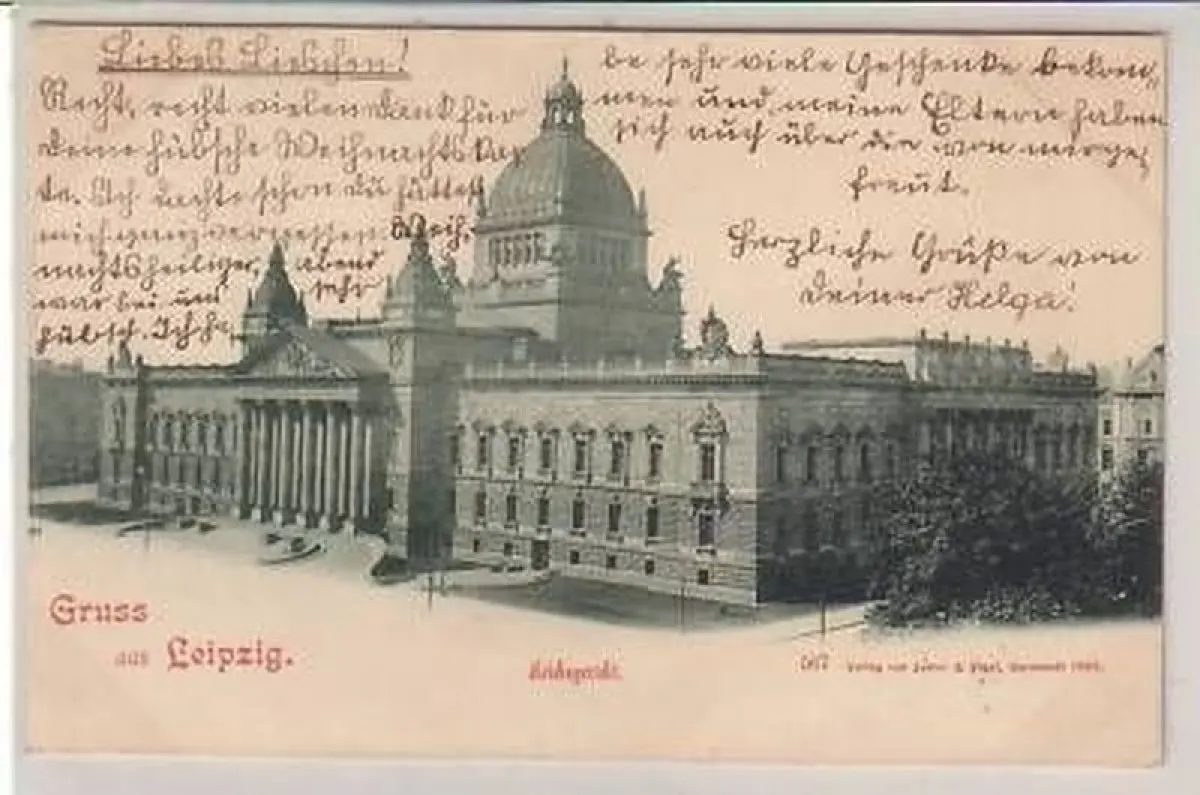 Liebes Lieschen!
Recht, recht vielen Dank für
Deine hübsche Weihnachtskar
te. Ich dachte schon du hättest
mich ganz vergessen. Weih-
nachtsheiliger, abend
war bei uns sehr
hübsch. Ich ha
be sehr viele Geschenke bekom,
men und meine Eltern haben
sich auch über die von mir ge,
freut.
Herzliche Grüße von
Deiner Helga!
Gruss
aus Leipzig.
Reichsgericht.